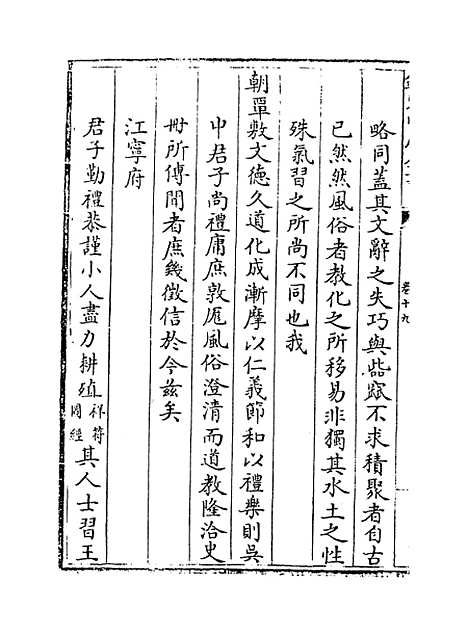 卷十九
略同蓋其文辭之失巧與啙窳不求積聚者自古
已然然風俗者教化之所移易非獨其水土之性
殊氣習之所尚不同也我
朝單敷文德久道化成漸摩以仁義節和以禮樂則吳
中君子尚禮庸庶敦厖風俗澄清而道教隆洽史
冊所傳聞者庶幾徵信於今茲矣
江寧府
君子勤禮恭謹小人盡力耕殖祥符圖經其人士習王